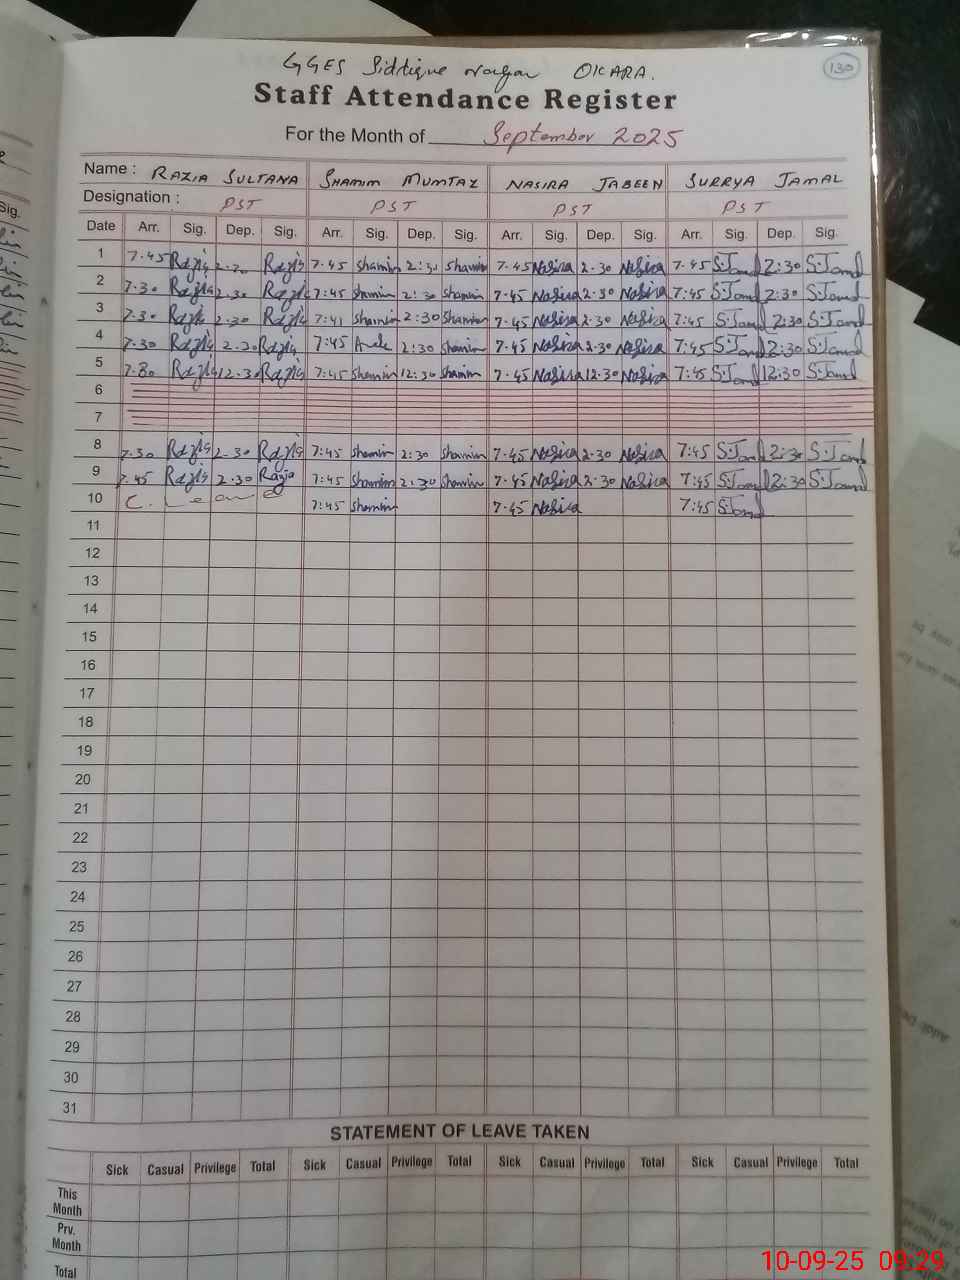 GGES Siddique Nagar OKARA.
130
Staff Attendance Register
For the Month of September 2025
Name : RAZIA SULTANA SHAMIM MUMTAZ NASIRA JABEEN SURRYA JAMAL
Designation : PST PST PST PST
Date Arr. Sig. Dep. Sig. Arr. Sig. Dep. Sig. Arr. Sig. Dep. Sig. Arr. Sig. Dep. Sig.
1 7.45 Razia Razia 7.45 shamim 2:30 shamim 7.45 Nasira 2.30 Nasira 7.45 S.Jamal 2:30 S.Jamal
2 7.30 Razia 2.30 Razia 7:45 shamim 2:30 shamim 7.45 Nasira 2.30 Nasira 7:45 S.Jamal 2:30 S.Jamal
3 7.30 Razia 2.30 Razia 7:41 shamim 2:30 shamim 7.45 Nasira 2.30 Nasira 7:45 S.Jamal 2:30 S.Jamal
4 7.30 Razia 2.30 Razia 7:45 2:30 shamim 7.45 Nasira 2.30 Nasira 7:45 S.Jamal 2:30 S.Jamal
5 7.30 Razia 12.30 Razia 7:45 shamim 12:30 shamim 7.45 Nasira 12.30 Nasira 7:45 S.Jamal 12:30 S.Jamal
6
7
8 7.30 Razia 2.30 Razia 7:45 shamim 2:30 shamim 7.45 Nasira 2.30 Nasira 7:45 S.Jamal 2:30 S.Jamal
9 7.45 Razia 2.30 Razia 7:45 shamim 2:30 shamim 7.45 Nasira 2.30 Nasira 7:45 S.Jamal 2:30 S.Jamal
10 C. Leave 7:45 shamim 7.45 Nasira 7:45 S.Jamal
11
12
13
14
15
16
17
18
19
20
21
22
23
24
25
26
27
28
29
30
31
STATEMENT OF LEAVE TAKEN
Sick Casual Privilege Total Sick Casual Privilege Total Sick Casual Privilege Total Sick Casual Privilege Total
This Month
Prv. Month
Total
10-09-25 09:29